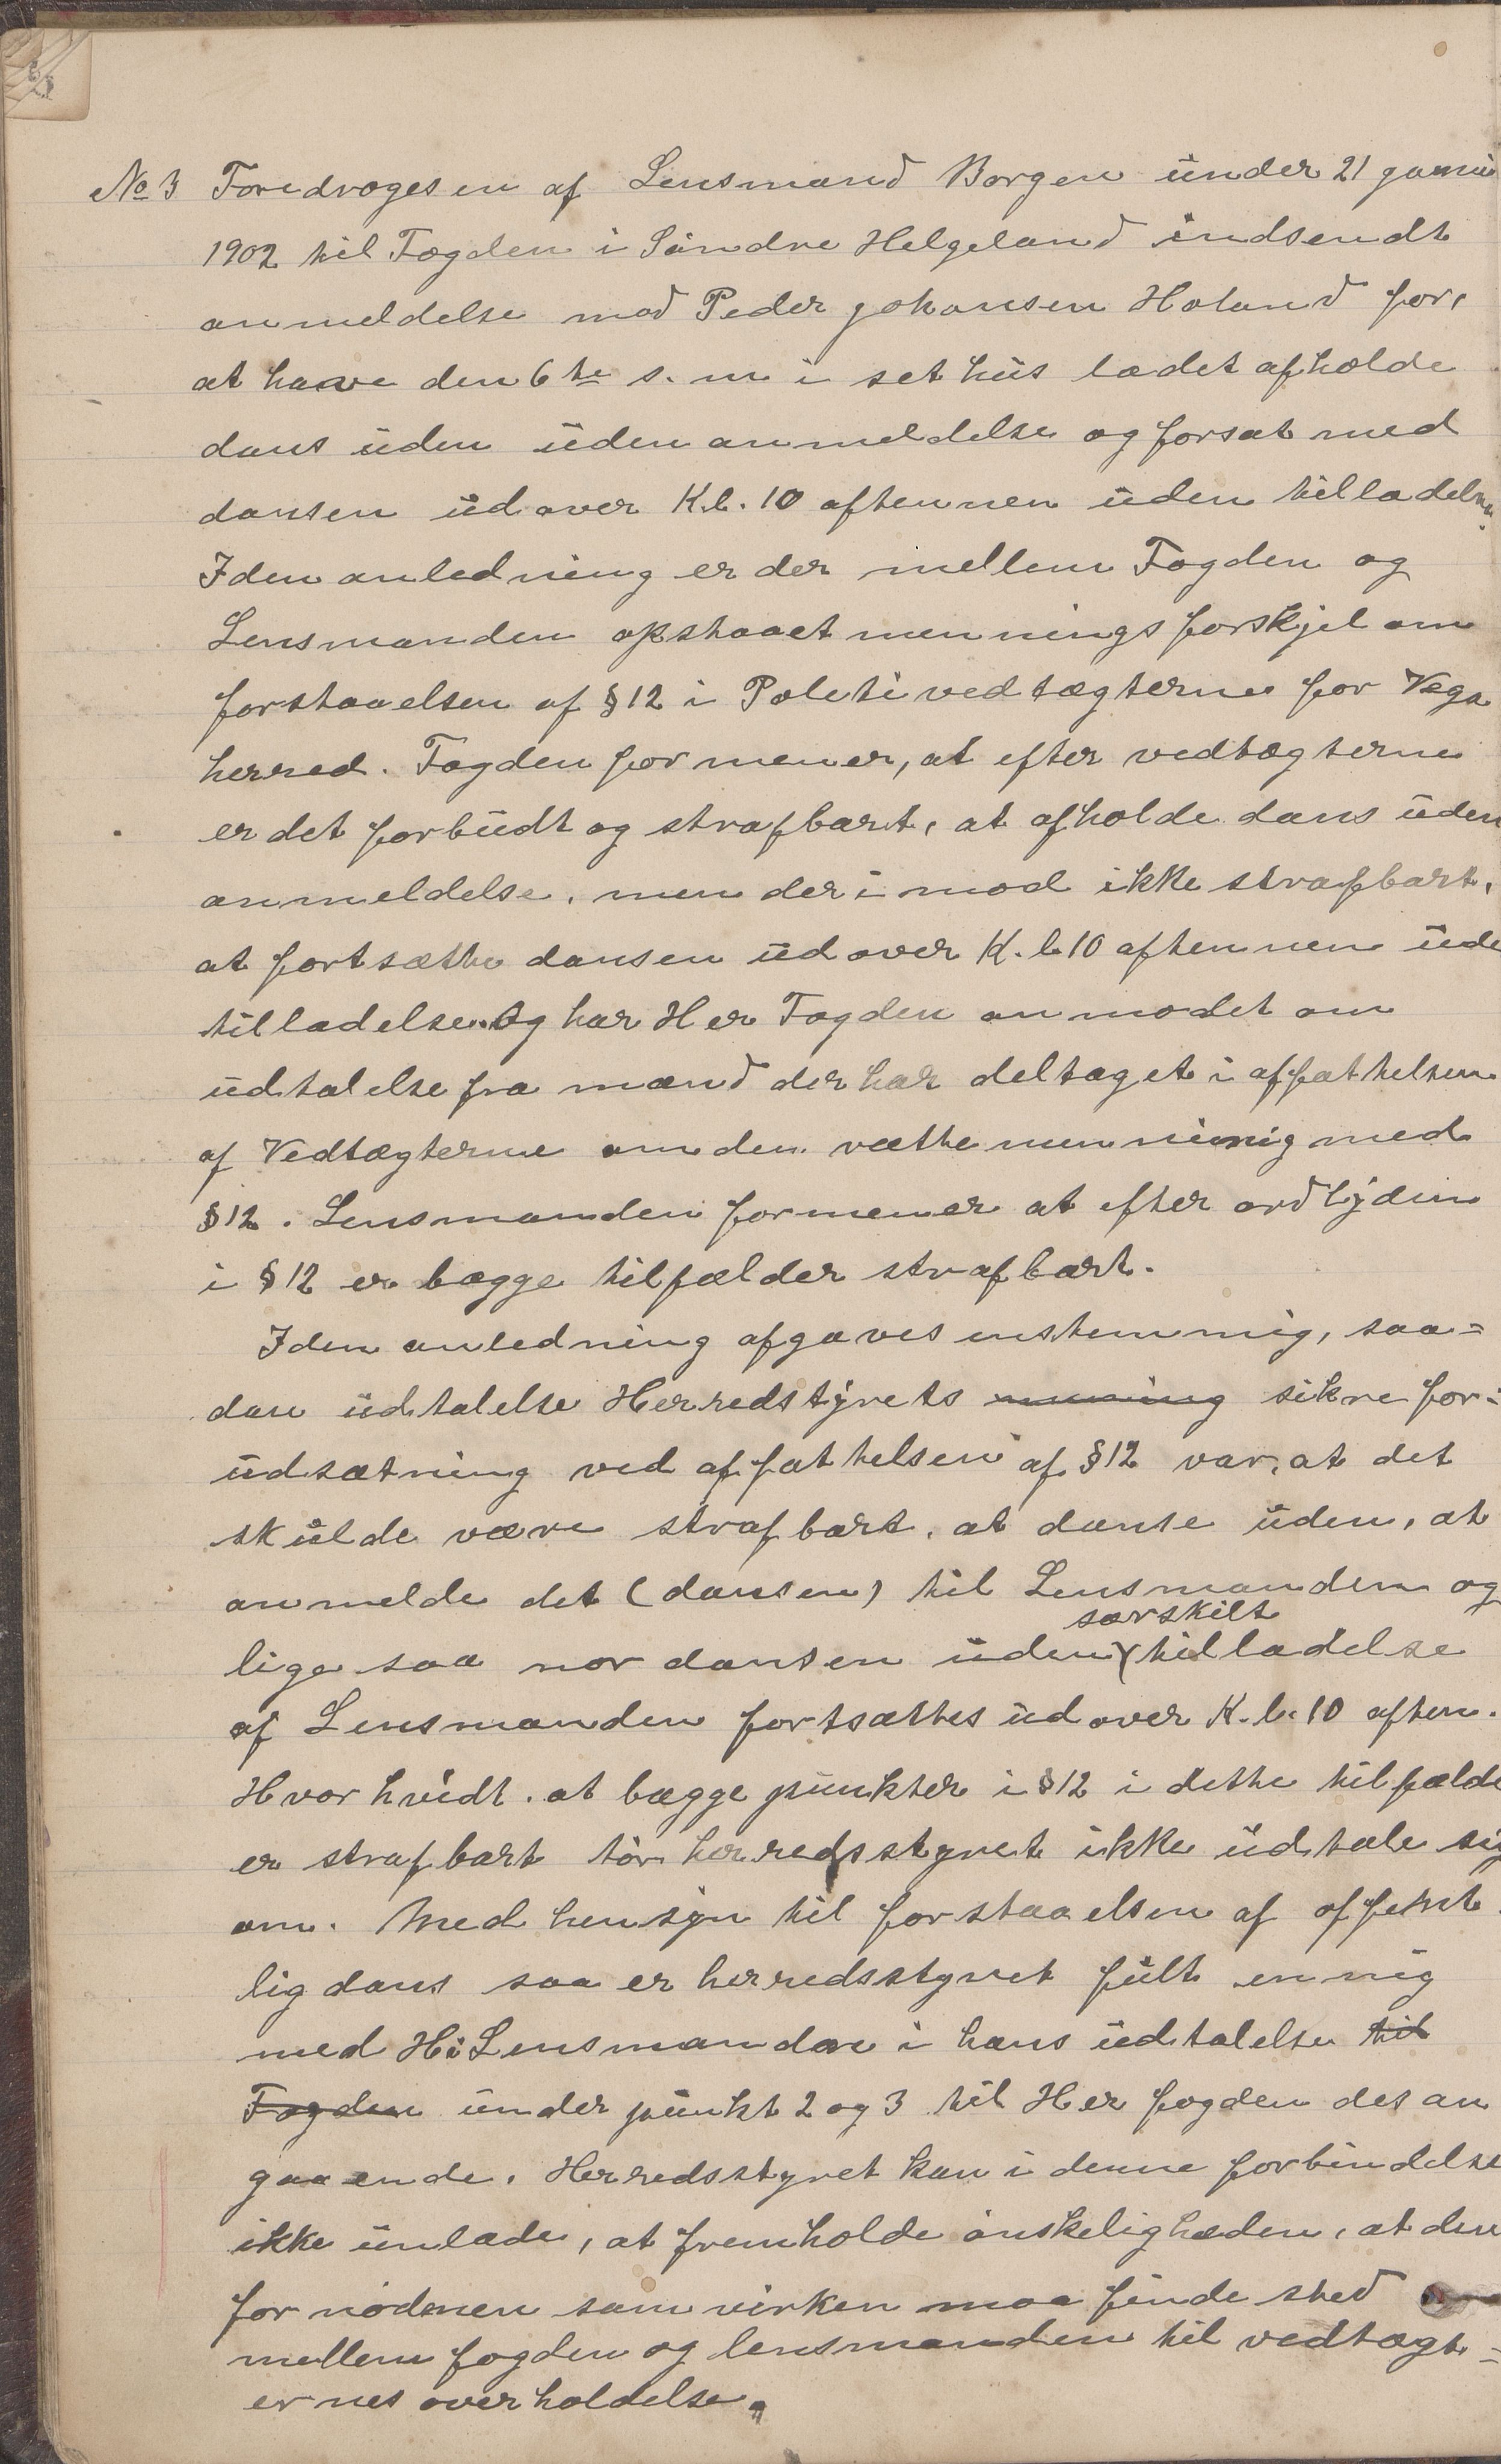 No 3 Foredroges en af Lensmand Borgen under 21 januar
1902 til Fogden i Söndre Helgeland indsendt
anmeldelse mod Peder Johansen Holand for,
at have den 6te s. m i set hus ladet afholde
dans uden uden anmeldelse og forsat med
dansen udover K.l. 10 aftennen uden tilladelse.
I den anledning er der mellem Fogden og
Lensmanden opstaaet mennings forskjel om
forstaaelsen af § 12 i Politivedtægterne for Vega
herred. Fogden formener, at efter vedtægterne
er det forbudt og strafbart, at afholde dans uden
anmeldelse, men derimod ikke strafbart,
at fortsætte dansen udover K.l 10 aftennen uden
tilladelse. Og har Her Fogden anmodet om
udtalelse fra mænd der har deltaget i affattelsen
af Vedtægterne om den rætte menning med
§ 12. Lensmanden formener at efter ordlyden
i § 12 er begge tilfælder strafbart.
I den anledning afgaves enstemmig, saa=
dan udtalelse Herredstyrets menning sikre for=
udsætning ved affattelsen af § 12 var, at det
skulde være strafbart, at danse uden, at
anmelde det (dansen) til Lensmanden og
særskilt
lige saa nor dansen uden tilladelse
af Lensmanden fortsættes udover K.l. 10 aften.
Hvorhvidt at bægge punkter i § 12 i dette tilfælde
er strafbart tör herredsstyret ikke udtale sig
om. Med hensyn til forstaaelsen af offent
lig dans saa er herredsstyret fult ennig
med Hr Lensmanden i hans udtalelse til
Fogden under punkt 2 og 3 til Her fogden des an
gaaende. Herredsstyret kan i denne forbindelse
ikke unlade, at fremholde önskeligheden, at den
fornödnen samvirken maa finde sted
mellem fogden og lensmanden til vedtægt=
ernes overholdelse.